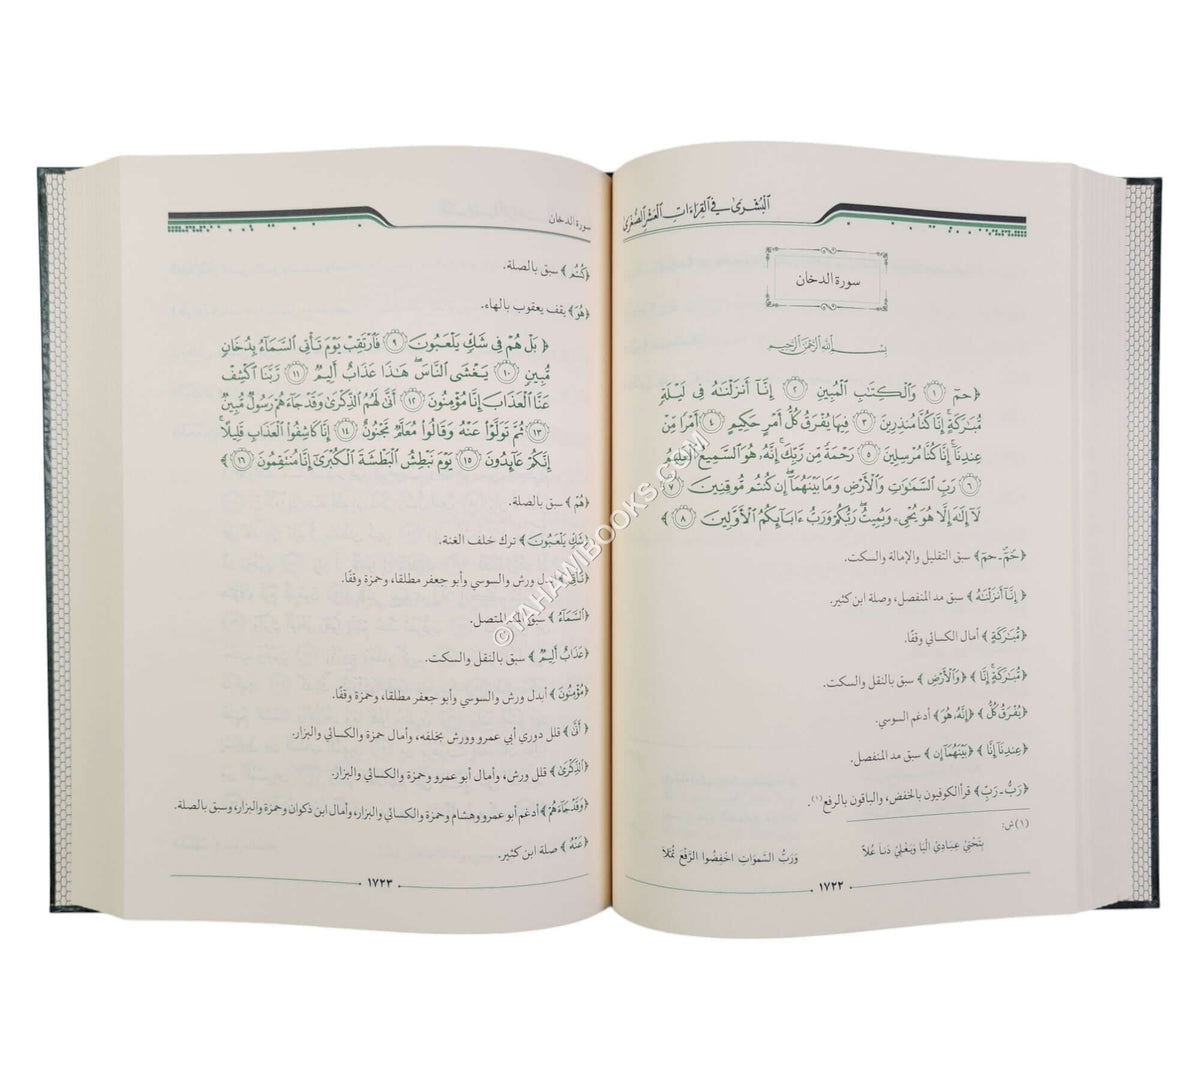 البُشرى في القراءات العشر الصُّغرى
سورة الدخان
بِسْمِ ٱللَّهِ ٱلرَّحْمَٰنِ ٱلرَّحِيمِ
﴿حمٓ ١ وَٱلْكِتَٰبِ ٱلْمُبِينِ ٢ إِنَّآ أَنزَلْنَٰهُ فِى لَيْلَةٍ
مُّبَٰرَكَةٍ ۚ إِنَّا كُنَّا مُنذِرِينَ ٣ فِيهَا يُفْرَقُ كُلُّ أَمْرٍ حَكِيمٍ ٤ أَمْرًا مِّنْ
عِندِنَآ ۚ إِنَّا كُنَّا مُرْسِلِينَ ٥ رَحْمَةً مِّن رَّبِّكَ ۚ إِنَّهُۥ هُوَ ٱلسَّمِيعُ ٱلْعَلِيمُ
٦ رَبِّ ٱلسَّمَٰوَٰتِ وَٱلْأَرْضِ وَمَا بَيْنَهُمَآ ۖ إِن كُنتُم مُّوقِنِينَ ٧
لَآ إِلَٰهَ إِلَّا هُوَ يُحْىِۦ وَيُمِيتُ ۖ رَبُّكُمْ وَرَبُّ ءَابَآئِكُمُ ٱلْأَوَّلِينَ ٨﴾
﴿حَمٓ ـ حمٓ﴾ سبق التقليل والإمالة والسكت.
﴿إِنَّآ أَنزَلْنَٰهُ﴾ سبق مد المنفصل، وصلة ابن كثير.
﴿مُّبَٰرَكَةٍ﴾ أمال الكسائي وقفًا.
﴿مُّبَٰرَكَةٍ ۚ إِنَّا﴾ ﴿وَٱلْأَرْضِ﴾ سبق بالنقل والسكت.
﴿يُفْرَقُ كُلُّ﴾ ﴿إِنَّهُۥ هُوَ﴾ أدغم السوسي.
﴿عِندِنَآ إِنَّا﴾ ﴿بَيْنَهُمَآ إِن﴾ سبق مد المنفصل.
﴿رَبُّ ـ رَبِّ﴾ قرأ الكوفيون بالخفض، والباقون بالرفع(١).
(١) ش:
بِتَحْتِي عِبَادِيَ الْيَا وَيَغْلِي دَنَا عُلاً وَرَبُّ السَّمَوَاتِ اخْفِضُوا الرَّفْعَ ثُمَّلَا
١٧٢٢
سورة الدخان
﴿كُنتُم﴾ سبق بالصلة.
﴿هُوَ﴾ يقف يعقوب بالهاء.
﴿بَلْ هُمْ فِى شَكٍّ يَلْعَبُونَ ٩ فَٱرْتَقِبْ يَوْمَ تَأْتِى ٱلسَّمَآءُ بِدُخَانٍ
مُّبِينٍ ١٠ يَغْشَى ٱلنَّاسَ ۖ هَٰذَا عَذَابٌ أَلِيمٌ ١١ رَّبَّنَا ٱكْشِفْ
عَنَّا ٱلْعَذَابَ إِنَّا مُؤْمِنُونَ ١٢ أَنَّىٰ لَهُمُ ٱلذِّكْرَىٰ وَقَدْ جَآءَهُمْ رَسُولٌ مُّبِينٌ
١٣ ثُمَّ تَوَلَّوْا۟ عَنْهُ وَقَالُوا۟ مُعَلَّمٌ مَّجْنُونٌ ١٤ إِنَّا كَاشِفُوا۟ ٱلْعَذَابِ قَلِيلًا ۚ
إِنَّكُمْ عَآئِدُونَ ١٥ يَوْمَ نَبْطِشُ ٱلْبَطْشَةَ ٱلْكُبْرَىٰٓ إِنَّا مُنتَقِمُونَ ١٦﴾
﴿هُمْ﴾ سبق بالصلة.
﴿شَكٍّ يَلْعَبُونَ﴾ ترك خلف الغنة.
﴿تَأْتِى﴾ أبدل ورش والسوسي وأبو جعفر مطلقا، وحمزة وقفًا.
﴿ٱلسَّمَآءُ﴾ سبق المد المتصل.
﴿عَذَابٌ أَلِيمٌ﴾ سبق بالنقل والسكت.
﴿مُؤْمِنُونَ﴾ أبدل ورش والسوسي وأبو جعفر مطلقا، وحمزة وقفًا.
﴿أَنَّىٰ﴾ قلل دوري أبي عمرو وورش بخلفه، وأمال حمزة والكسائي والبزار.
﴿ٱلذِّكْرَىٰ﴾ قلل ورش، وأمال أبو عمرو وحمزة والكسائي والبزار.
﴿وَقَدْ جَآءَهُمْ﴾ أدغم أبو عمرو وهشام وحمزة والكسائي والبزار، وأمال ابن ذكوان وحمزة والبزار، وسبق بالصلة.
﴿عَنْهُ﴾ صلة ابن كثير.
١٧٢٣
©TAHAWIBOOKS.COM